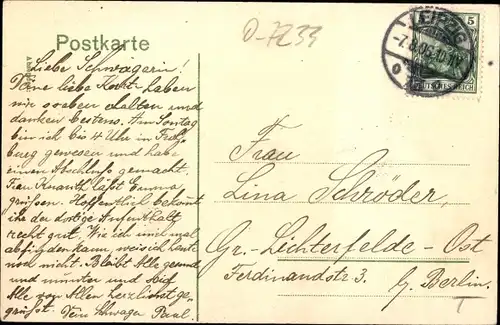 Postkarte
D-7233
LEIPZIG
-7.8.06.
5
DEUTSCHES REICH
Liebe Schwägerin!
Deine liebe Karte haben
wir soeben erhalten und
danken bestens. Am Sontag
bin ich bis 4 Uhr in
burg gewesen und habe
einen Abschluss gemacht.
Frau Knauth läßt Emma
grüssen. Hoffentlich bekomt
ihr der dortige Aufenthalt
recht gut. Wie ich mich mal
abfinden kann, weis ich heute
noch nicht. Bleibt Alle gesund
und munter und seid
Alle von Allen herzlichst ge-
grüsst. Dein Schwager Paul.
Frau
Lina Schröder,
Gr.-Lichterfelde-Ost
Ferdinandstr. 3. b/. Berlin.